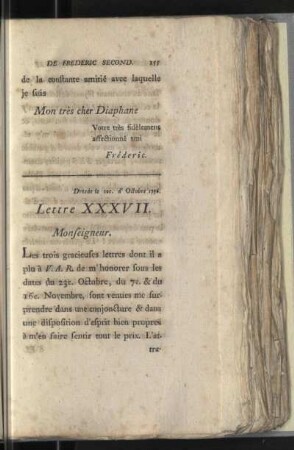 DE FREDERIC SECOND. 111
de la constante amitié avec laquelle
je suis
Mon très cher Diaphane
Votre très fidèlement
affectionné ami
Fréderic.
Dresde le 1er. d' Octobre
Lettre XXXVII.
Monseigneur.
Les trois gracieuses lettres dont il a
plu à V. A. R. de m'honorer sous les
dates du 23e. Octobre, du 7e. & du
16e. Novembre, sont venues me sur-
prendre dans une conjoncture & dans
une disposition d'esprit bien propres
à m'en faire sentir tout le prix. L'at-
tra-